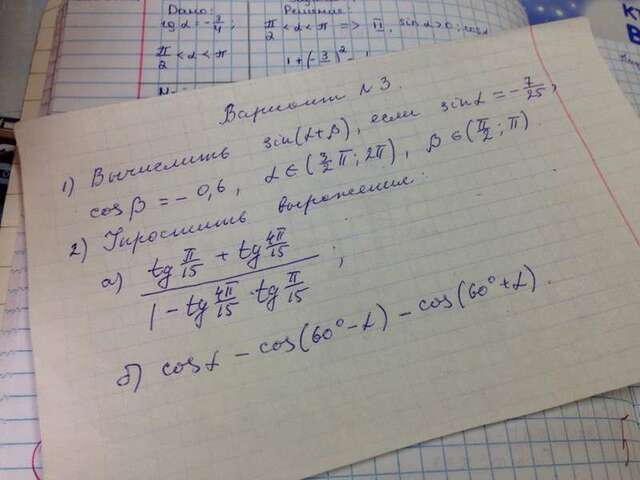 Дано:
Решение:
tg α = -3/4;
π/2 < α < π => II, sin α > 0;
π/2 < α < π
1 + (-3/4)²
Вариант №3.
1) Вычислить sin(α+β), если sin α = -7/25,
cos β = -0,6, α ∈ (3/2 π; 2π), β ∈ (π/2; π).
2) Упростить выражения:
а) (tg π/15 + tg 4π/15) / (1 - tg 4π/15 · tg π/15);
б) cos α - cos(60° - α) - cos(60° + α).